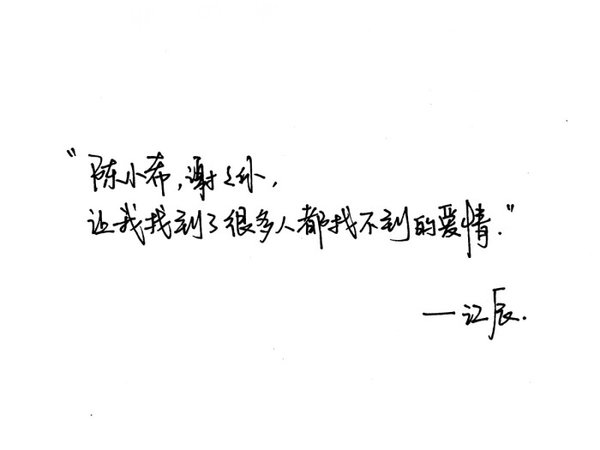 “陈小希，谢谢你，
让我找到了很多人都找不到的爱情.”
—江辰.